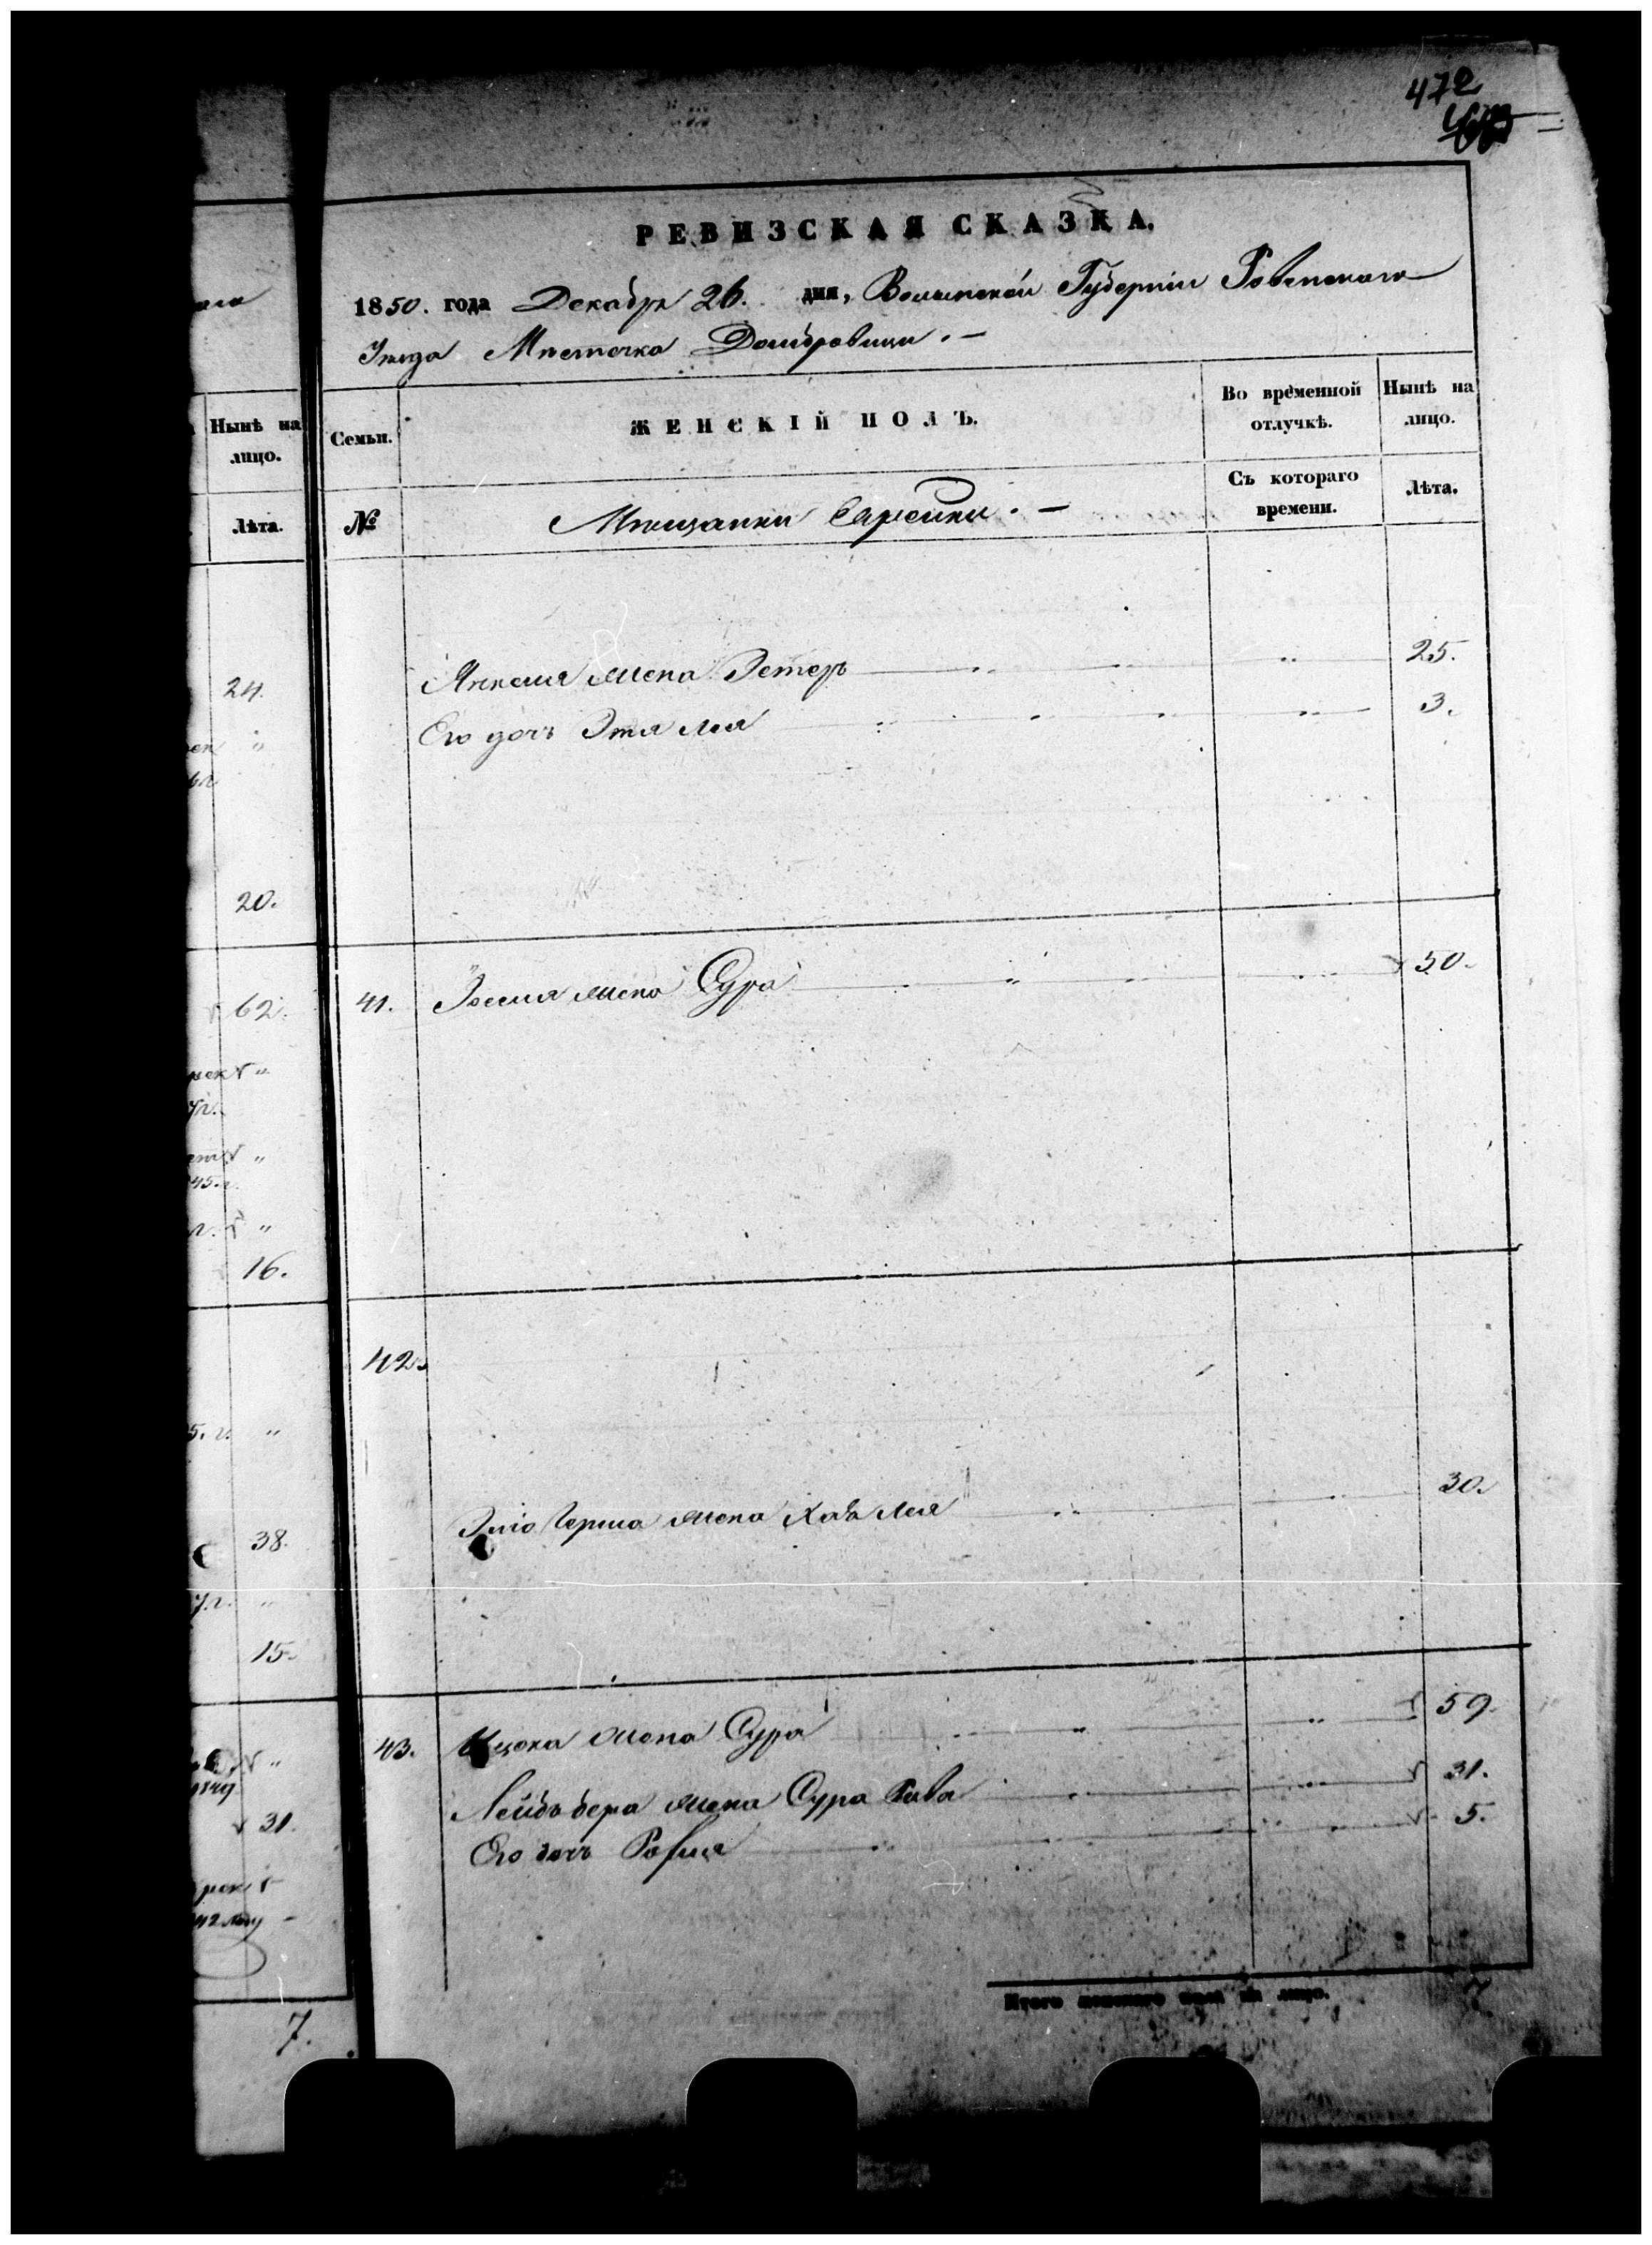 472
РЕВИЗСКАЯ СКАЗКА.
1850. года Декабря 26. дня, Волынской Губерніи Ровенскаго
Уѣзда Мѣстечка Домбровицы. —
Нынѣ на лицо.
Лѣта.
24.
"
20.
62.
"
"
45. г.
"
16.
5. г. "
38.
"
15.
"
31.
7.
Семьи.
ЖЕНСКІЙ ПОЛЪ.
Во временной отлучкѣ.
Нынѣ на лицо.
№
Мѣщанки Еврейки. —
Съ котораго времени.
Лѣта.
Янкеля жена Эстеръ " " 25.
Его дочь Этя Лея " " 3.
41. Іоселя жена Сура " " 50.
42.
Эліо Герша жена Хава Лея " " 30.
43. Ицека жена Сура " " 59.
Лейбъ Бера жена Сура Рива " " 31.
Его дочь " " 5.
Итого женскаго пола на лицо. 7